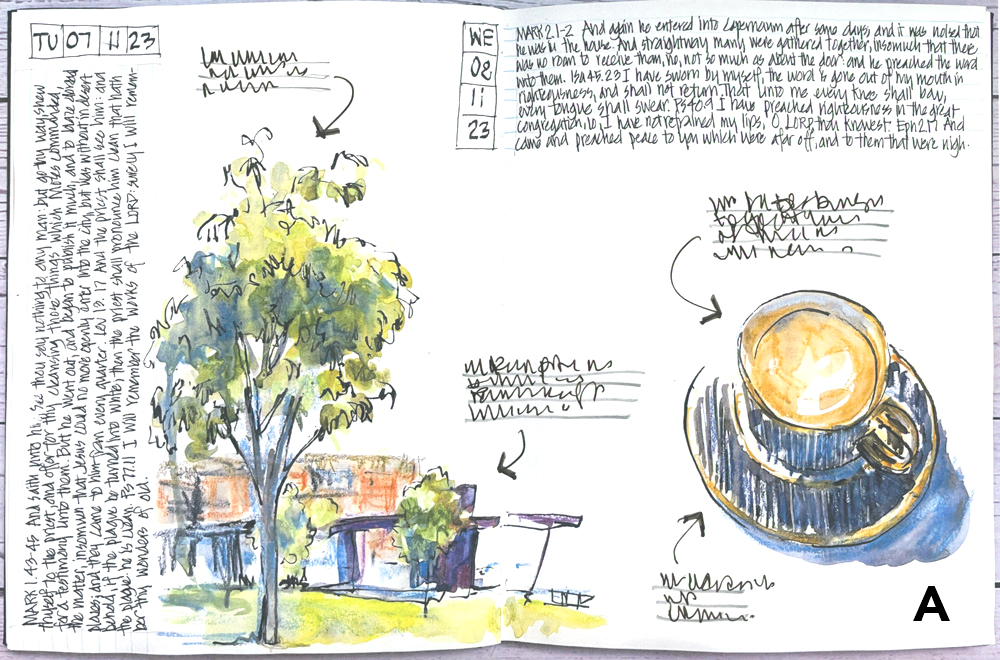 TU 07 11 23
MARK 1.43-45 And saith unto him, See thou say nothing to any man: but go thy way, shew
thyself to the priest, and offer for thy cleansing those things which Moses commanded,
for a testimony unto them. But he went out, and began to publish it much, and to blaze abroad
the matter, insomuch that Jesus could no more openly enter into the city, but was without in desert
places: and they came to him from every quarter. Lev 13.17 And the priest shall see him: and
behold, if the plague be turned into white; then the priest shall pronounce him clean that hath
the plague: he is clean. Ps 77.11 I will remember the works of the LORD: surely I will remem-
ber thy wonders of old.
WE
08
11
23
MARK 2.1-2 And again he entered into Capernaum after some days, and it was noised that
he was in the house. And straightway many were gathered together, insomuch that there
was no room to receive them, no, not so much as about the door: and he preached the word
unto them. Isa 45.23 I have sworn by myself, the word is gone out of my mouth in
righteousness, and shall not return, That unto me every knee shall bow,
every tongue shall swear. Ps 40.9 I have preached righteousness in the great
congregation, lo, I have not refrained my lips, O LORD, thou knowest. Eph 2.17 And
came and preached peace to you which were afar off, and to them that were nigh.
A